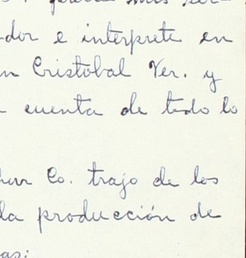 dor e interprete en
Cristóbal Ver. y
cuenta de todo lo
Co. trajo de los
la producción de